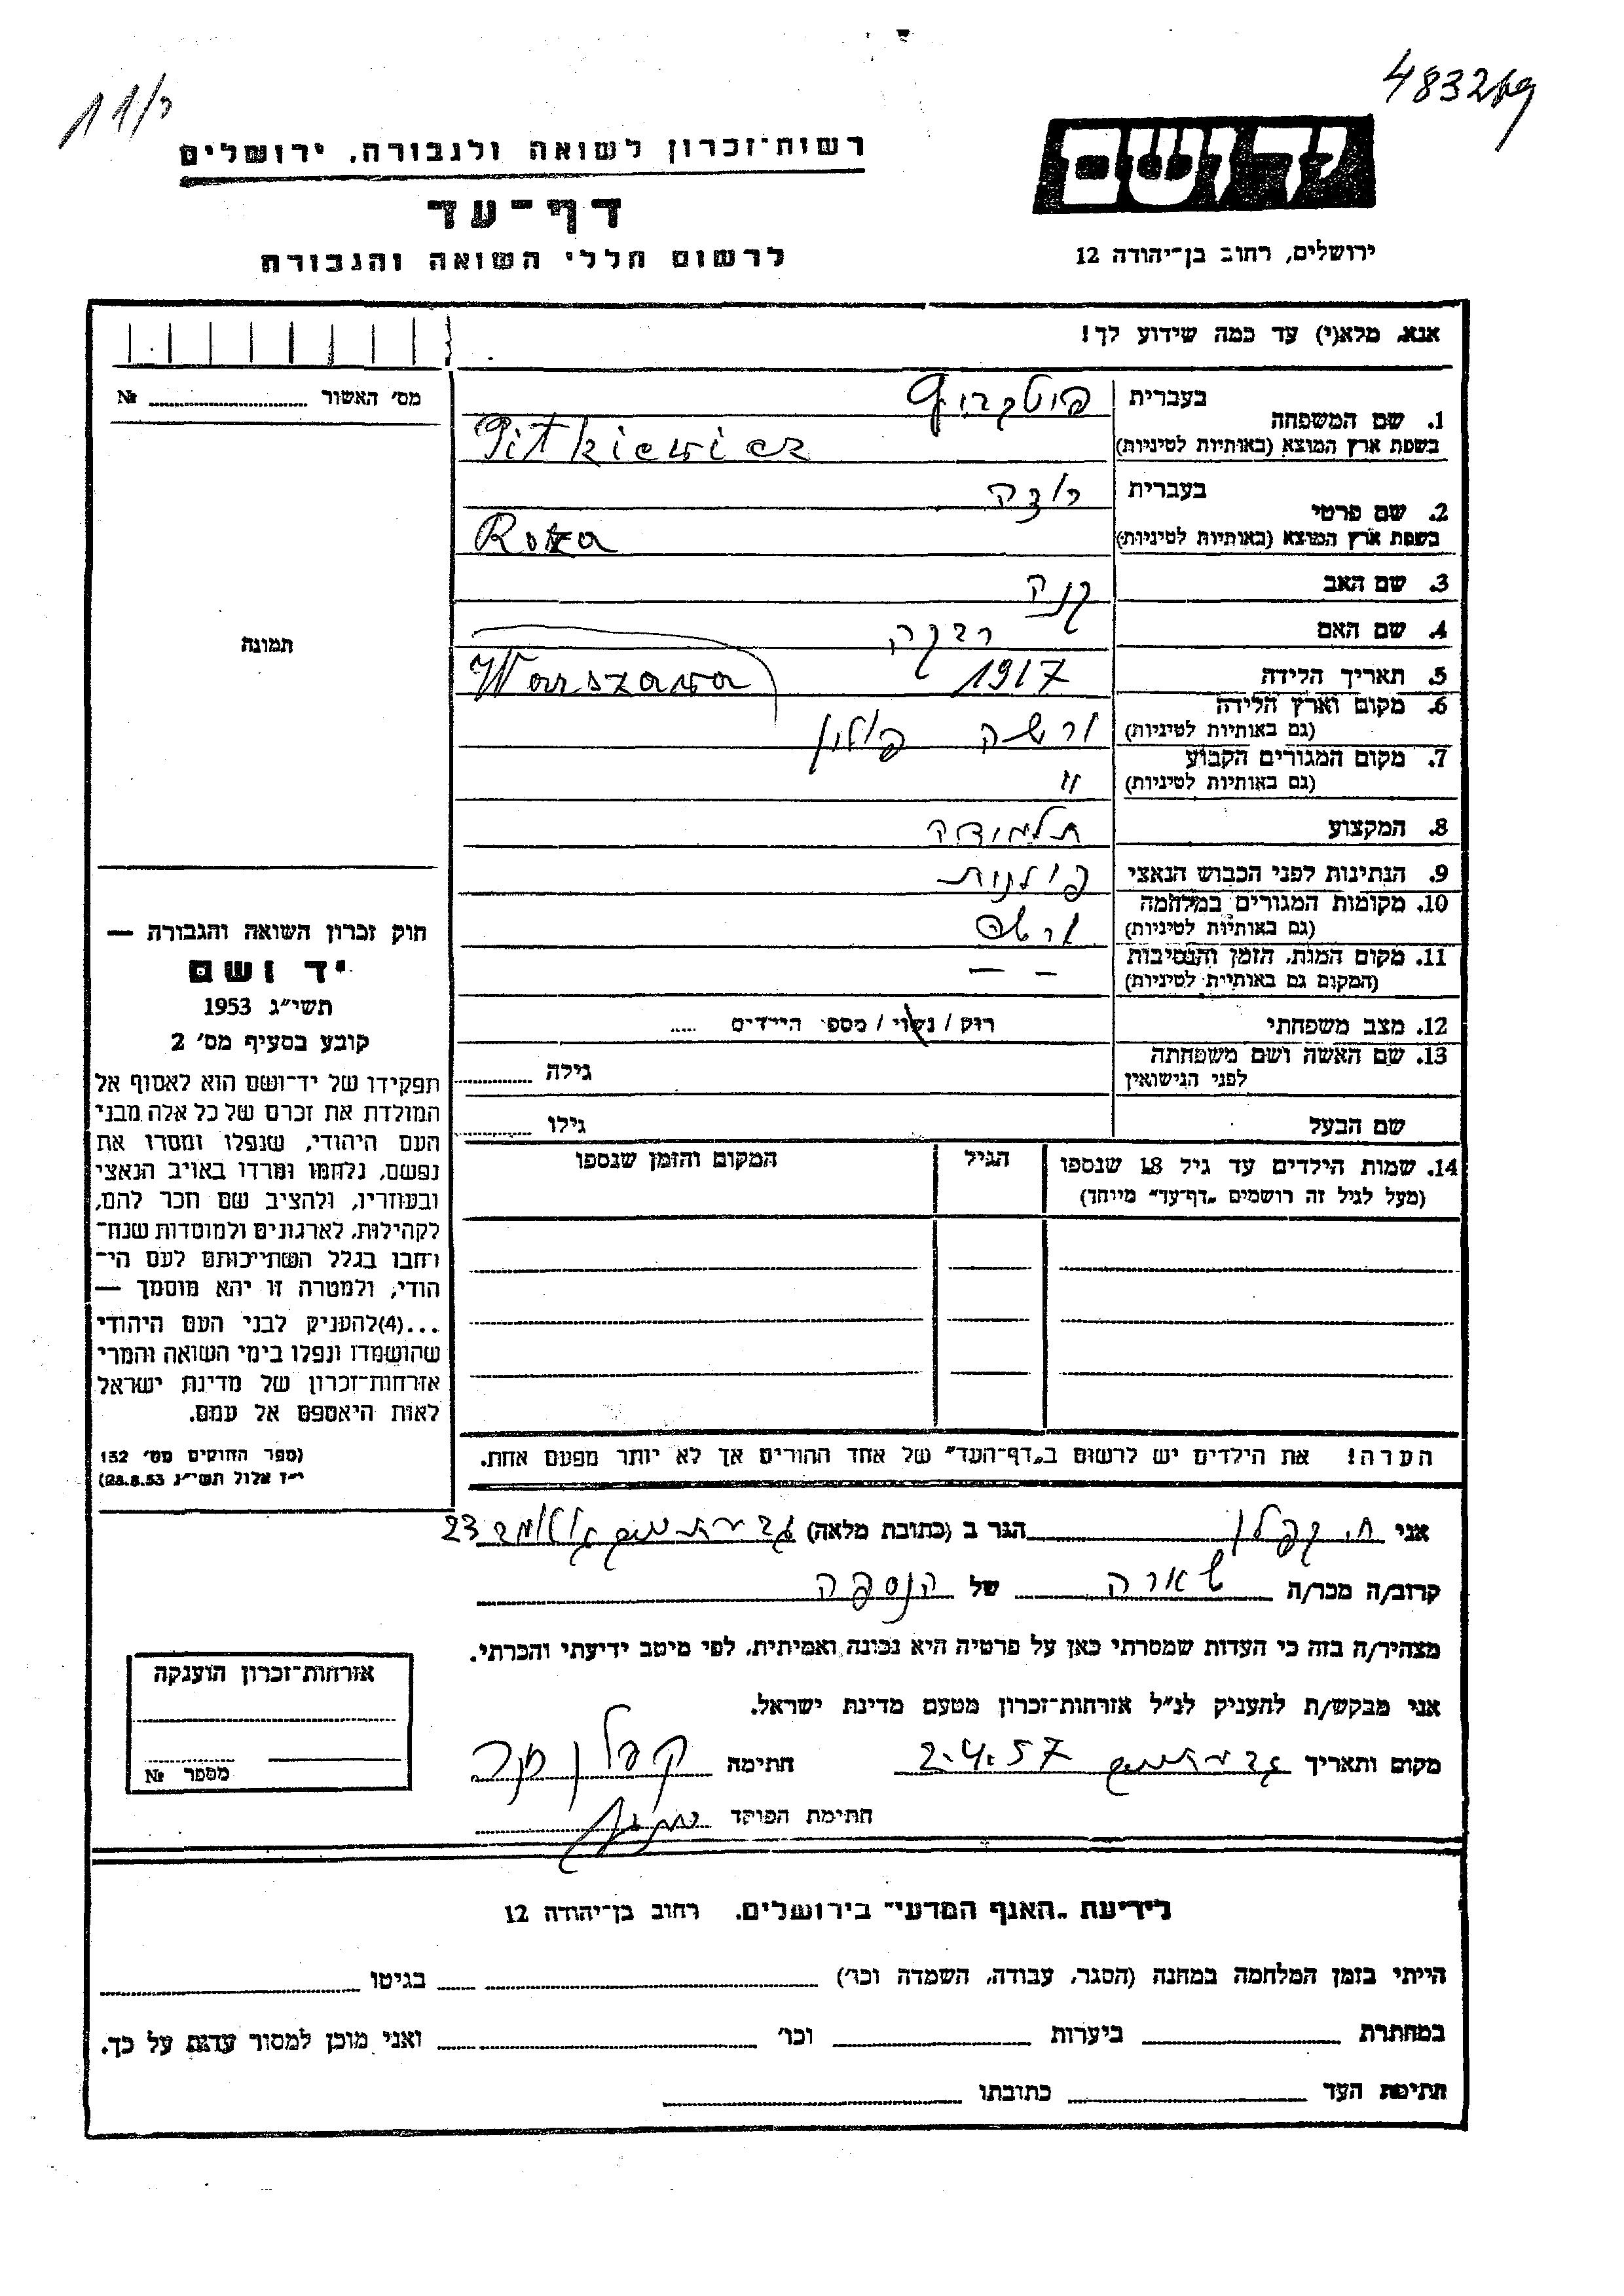 483219
11/י
יד ושם
רשות־זכרון לשואה ולגבורה, ירושלים
דף־עד
לרשום חללי השואה והגבורה
ירושלים, רחוב בן־יהודה 12
אנא, מלא(י) עד כמה שידוע לך!
מס׳ האשור № 
תמונה
1. שם המשפחה
בעברית
בשפת ארץ המוצא (באותיות לטיניות) Pitkiewicz
2. שם פרטי
בעברית רוזה
בשפת ארץ המוצא (באותיות לטיניות) Roza
3. שם האב
4. שם האם רבקה
5. תאריך הלידה 1917
6. מקום וארץ הלידה
(גם באותיות לטיניות) ורשה פולין Warszawa
7. מקום המגורים הקבוע
(גם באותיות לטיניות) "
8. המקצוע תלמידה
9. הנתינות לפני הכבוש הנאצי פולנית
10. מקומות המגורים במלחמה
(גם באותיות לטיניות) ורשה
11. מקום המות, הזמן והנסיבות
(המקום גם באותיות לטיניות) — —
12. מצב משפחתי רוק / נשוי / מספ׳ הילדים .....
13. שם האשה ושם משפחתה
לפני הנישואין גילה
שם הבעל גילו
14. שמות הילדים עד גיל 18 שנספו הגיל המקום והזמן שנספו
(מעל לגיל זה רושמים „דף־עד" מיוחד)
הערה! את הילדים יש לרשום ב„דף־העד" של אחד ההורים אך לא יותר מפעם אחת.
חוק זכרון השואה והגבורה —
יד ושם
תשי"ג 1953
קובע בסעיף מס׳ 2
תפקידו של יד־ושם הוא לאסוף אל
המולדת את זכרם של כל אלה מבני
העם היהודי, שנפלו ומסרו את
נפשם, נלחמו ומרדו באויב הנאצי
ובעוזריו, ולהציב שם וזכר להם,
לקהילות, לארגונים ולמוסדות שנח־
רבו בגלל השתייכותם לעם הי־
הודי, ולמטרה זו יהא מוסמך —
...(4) להעניק לבני העם היהודי
שהושמדו ונפלו בימי השואה והמרי
אזרחות־זכרון של מדינת ישראל
לאות היאספם אל עמם.
(ספר החוקים מס׳ 132
י"ז אלול תשי"ג 28.8.53)
אני ח. קפלן הגר ב (כתובת מלאה) גבעתיים 23
קרוב/ה מכר/ה שארה של הנספה
מצהיר/ה בזה כי העדות שמסרתי כאן על פרטיה היא נכונה ואמיתית, לפי מיטב ידיעתי והכרתי.
אני מבקש/ת להעניק לנ"ל אזרחות־זכרון מטעם מדינת ישראל.
מקום ותאריך גבעתיים 2.4.57 חתימה קפלן
חתימת הפוקד
אזרחות־זכרון הוענקה
מספר №
לידיעת „האגף המדעי" בירושלים, רחוב בן־יהודה 12
הייתי בזמן המלחמה במחנה (הסגר, עבודה, השמדה וכו׳) בגיטו
במחתרת ביערות וכו׳ ואני מוכן למסור עדות על כך.
חתימת העד כתובתו